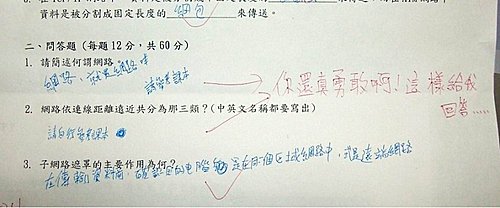 資料是被分割成固定長度的 網包 來傳送。
二、問答題（每題12分，共60分）
1. 請簡述何謂網路
網路，就是網路啊
請參考課本
你還真勇敢啊！這樣給我
回答.....
2. 網路依連線距離遠近共分為那三類？(中英文名稱都要寫出)
請自行參考課本
3. 子網路遮罩的主要作用為何？
在傳輸資料前，確認目的電腦 是在同個區域網路中，或是遠端網路